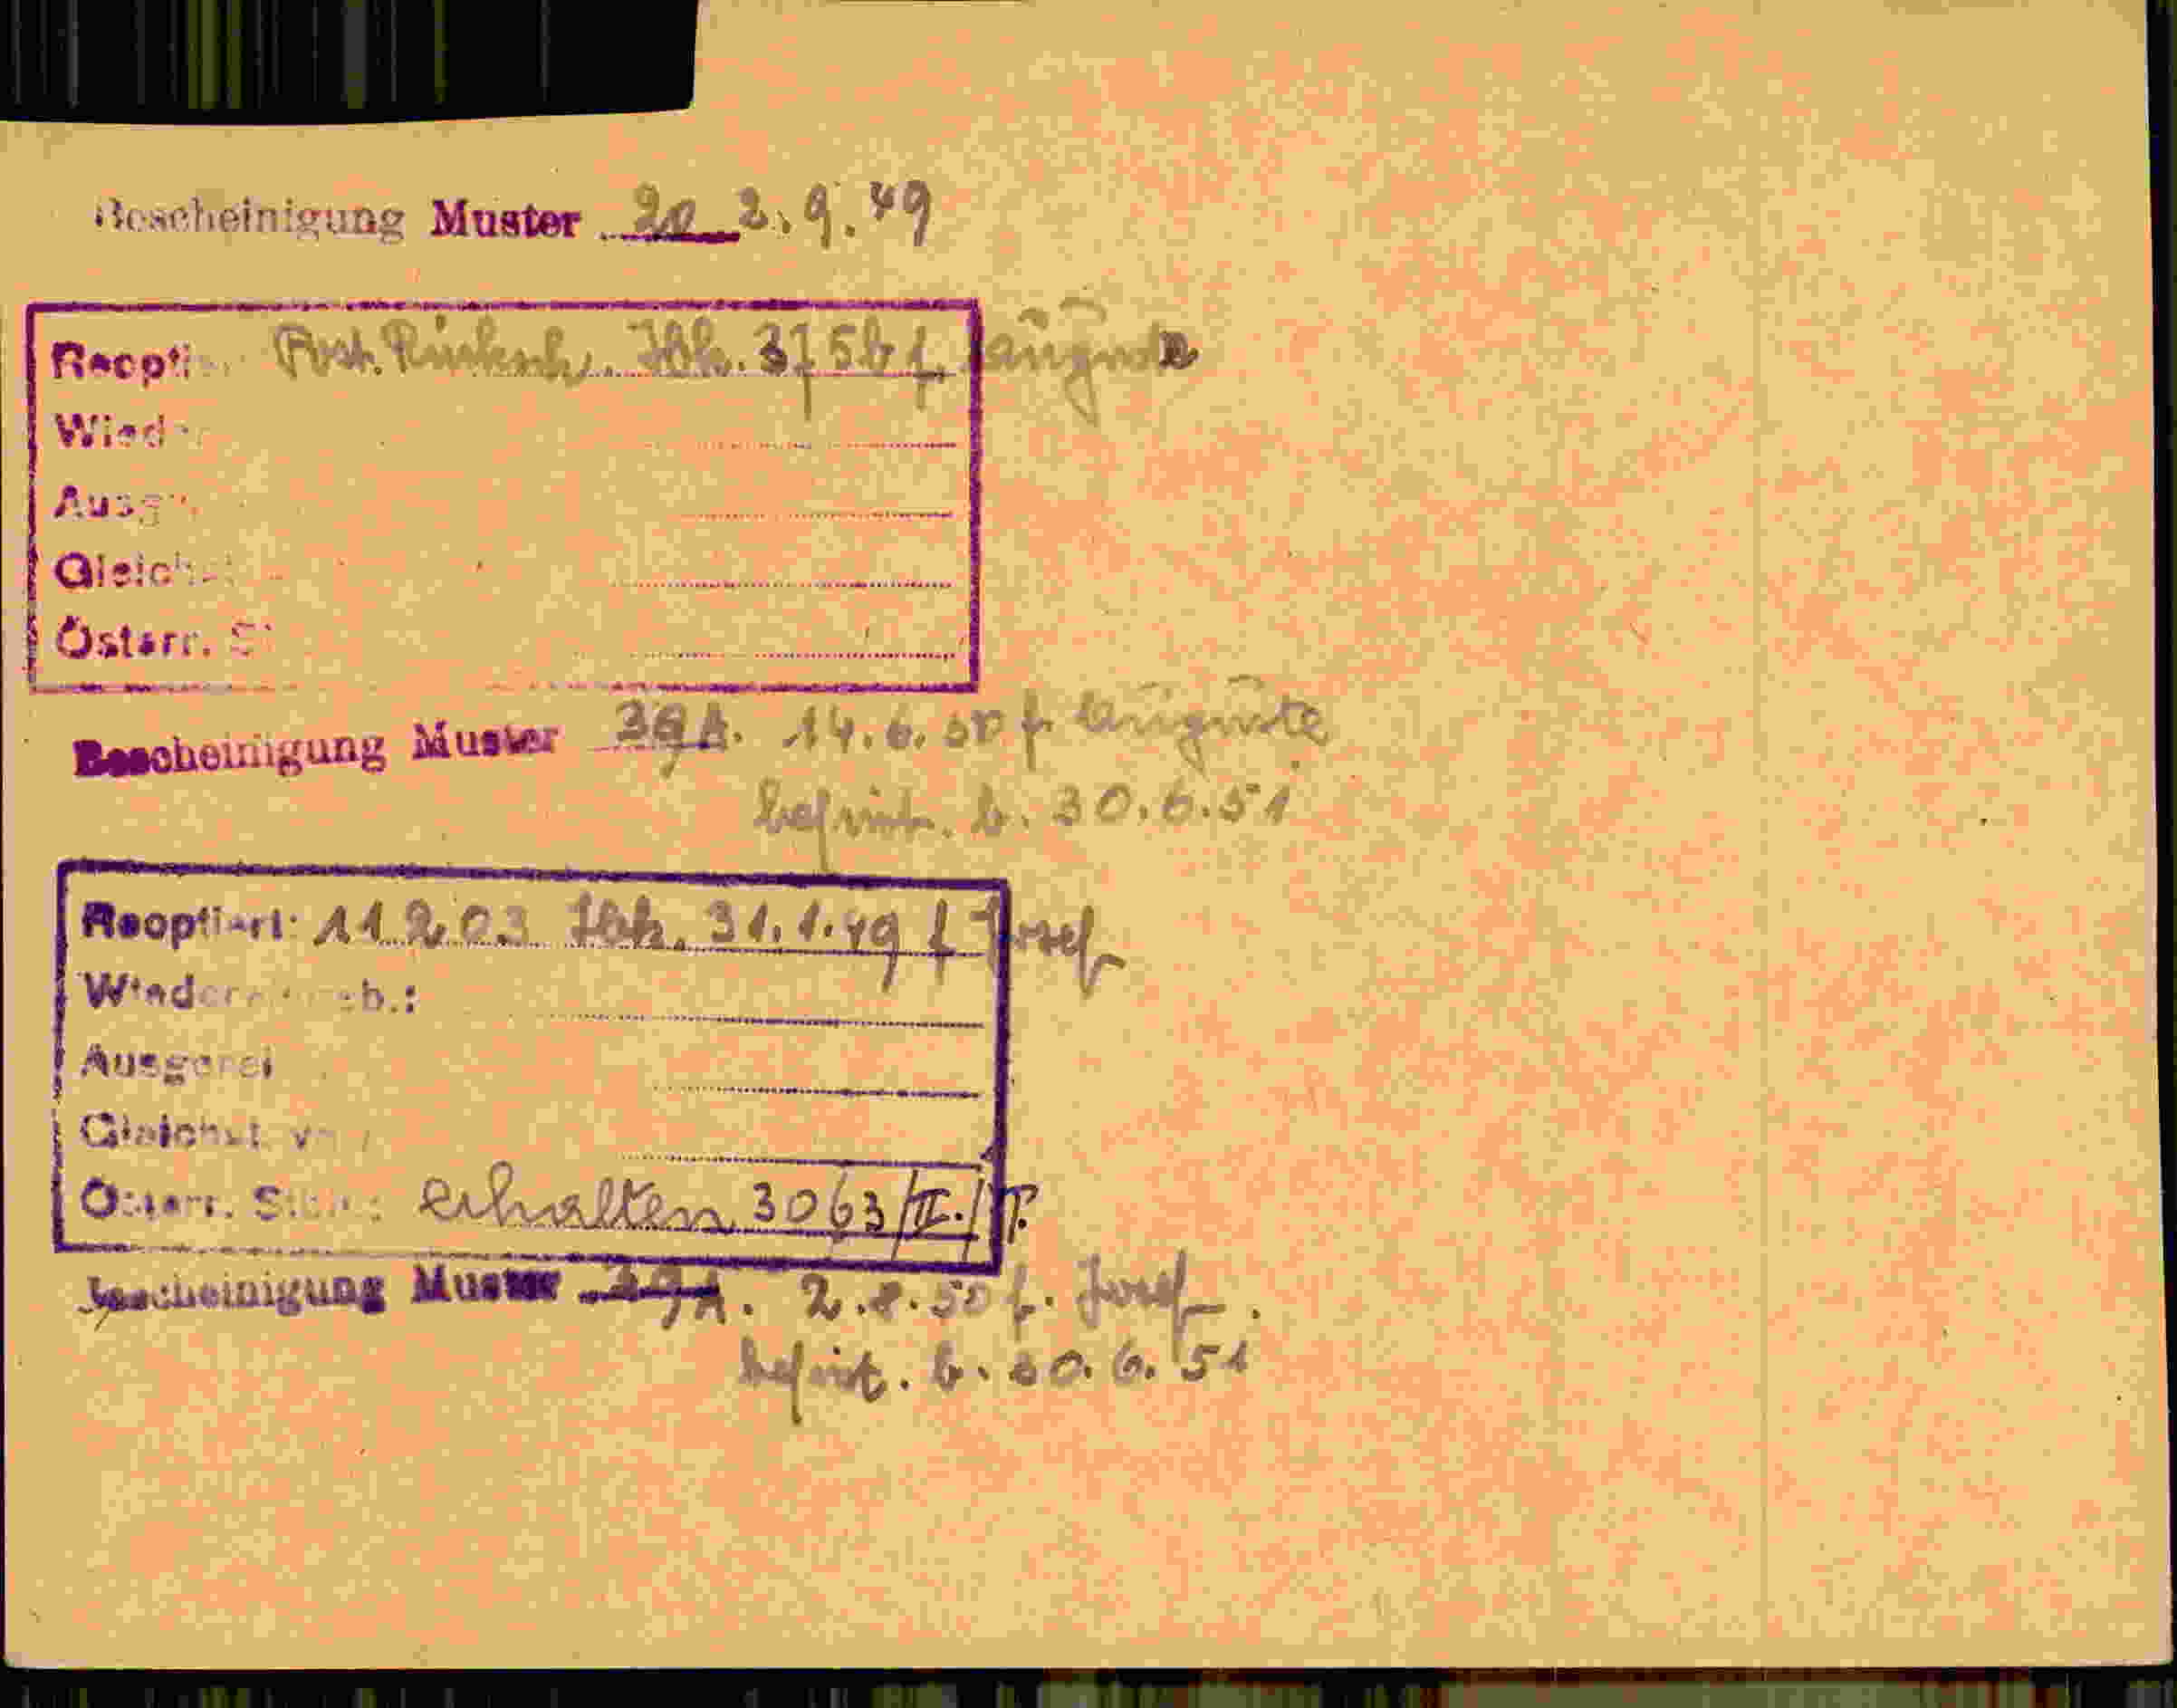 Bescheinigung Muster 20 2.9.49
Reopti
Wied
Ausg
Gleich
Österr. S
Bescheinigung Muster 39A. 14.6.50 f.
befrist. b. 30.6.51
Reoptiert: 11203 Ibk. 31.1.49 f Josef
Wieder b.:
Ausgerei
Gleichst. v
Österr. Stb.: erhalten 3063/II./
Bescheinigung Muster 39A. 2.8.50 f. Josef.
befrist. b. 30.6.51